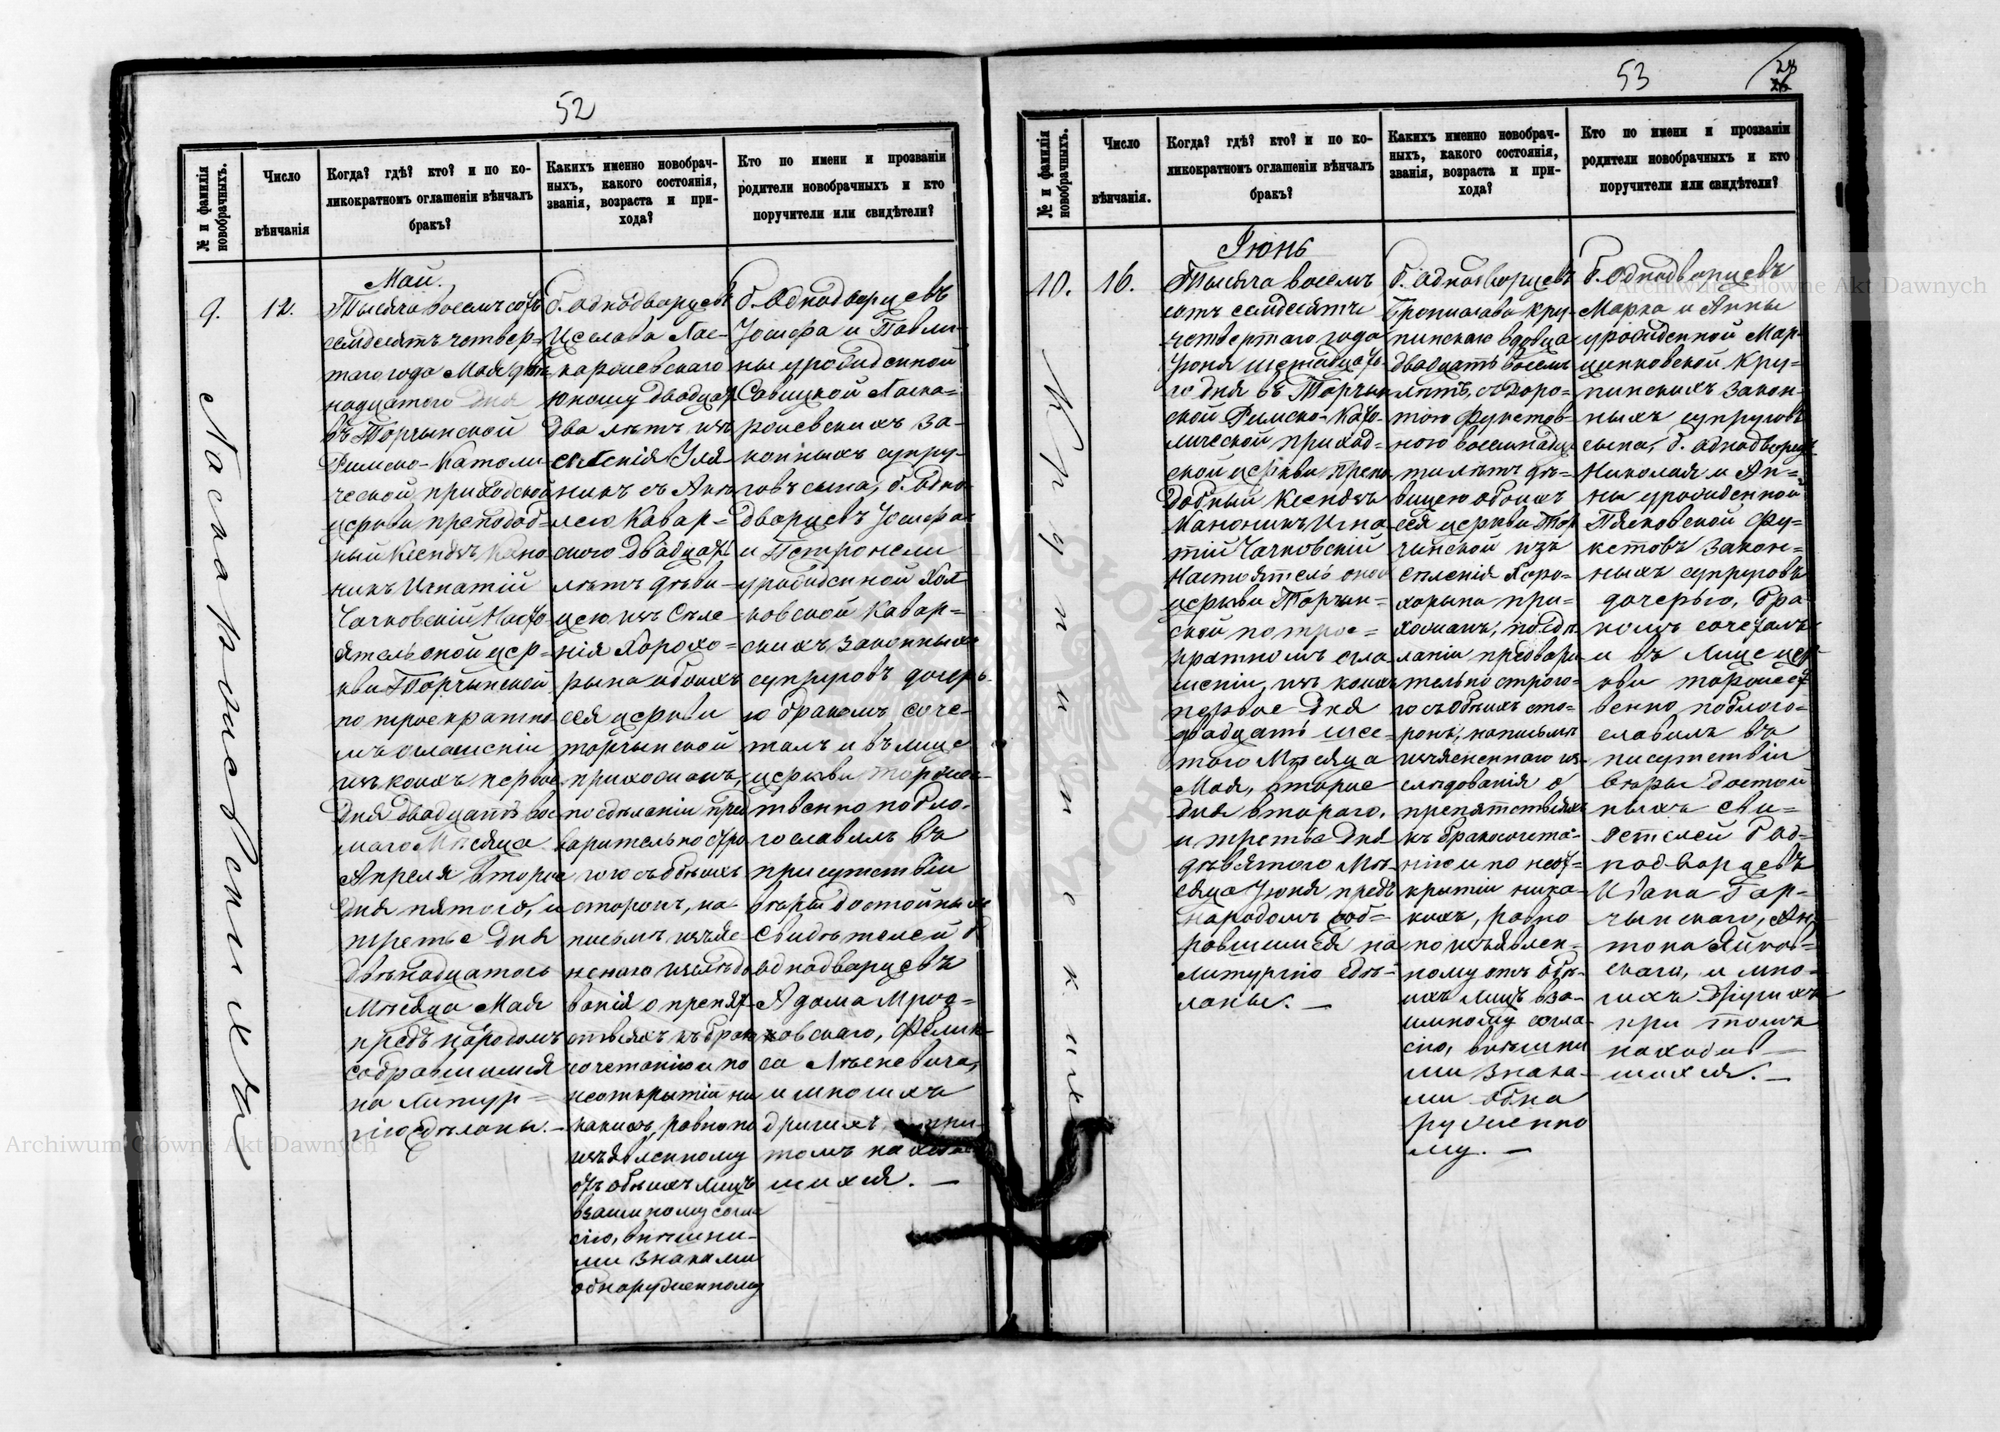 52
№ и фамилія новобрачныхъ.
Число вѣнчанія
Когда? гдѣ? кто? и по ко-
ликократномъ оглашеніи вѣнчалъ
бракъ?
Какихъ именно новобрач-
ныхъ, какого состоянія,
званія, возраста и при-
хода?
Кто по имени и прозваніи
родители новобрачныхъ и кто
поручители или свидѣтели?
9.
12.
Май.
Тысяча восемьсотъ
семдесятъ четвер-
таго года Мая двѣ-
надцатого дня
въ Торчынской
Римско-Католи
ческой приходской
церкви преподоб-
ный Ксендзъ Кано
никъ Игнатій
Чачковскій Насто
ятель оной цер-
кви Торчынской
по троекратно
мъ оглашеніи
изъ коихъ первое
дня двадцать вос
маго Мѣсяца
Апреля второе
дня пятого, и
третье дня
двѣнадцатого
Мѣсяца Мая
предъ народомъ
собравшимся
на Литур-
гію сдѣланы.
б. однодворцевъ
юношу двадцать
два лѣтъ изъ
селенія Уля-
никъ съ
двадцать
лѣтъ дѣви-
цею изъ Селе
нія Хорохо-
рына обоихъ
сея церкви
торчынской
прихожанъ,
по сдѣланіи пред
варительно стро
гого съ обѣихъ
сторонъ, на
письмѣ изъяс
неного изслѣдо
ванія о препят
ствіяхъ къ брак
сочетанію и по
неоткрытіи ни
какихъ, равно по
изъявленному
отъ обѣихъ лицъ
взаимному согла
сію, внѣшни-
ми знаками
обнаруженному
б. Однодворцевъ
Іосифа и Павли-
ны урожденной
Савицкой Ласка-
рсиевскихъ за-
конныхъ супру-
говъ сына, б. Одно
дворцевъ Іосифа
и Петронели
урожденной
ковской Кавар-
скихъ законныхъ
супруговъ дочерь-
ю бракомъ соче-
талъ и въ лице
церкви торжес-
твенно побло-
гославилъ въ
присутствіи
вѣры достойныхъ
свидѣтелей б
однодворцевъ
Адама Мроч-
ковскаго, Фелик-
са
и многихъ
другихъ при
томъ находив
шихся.
53
28
№ и фамилія новобрачныхъ.
Число
вѣнчанія.
Когда? гдѣ? кто? и по ко-
ликократномъ оглашеніи вѣнчалъ
бракъ?
Какихъ именно новобрач-
ныхъ, какого состоянія,
званія, возраста и при-
хода?
Кто по имени и прозваніи
родители новобрачныхъ и кто
поручители или свидѣтели?
10.
Крупинскіе
16.
Іюнь
Тысяча восемь
сотъ семдесятъ
четвертаго года
Іюня шестнадцато
го дня въ Торчын
ской Римско-Като
лической приход-
ской церкви препо
добный Ксендзъ
Каноникъ Игна
тій Чачковскій
Настоятель оной
церкви Торчын-
ской по трое-
кратномъ огла
шеніи, изъ коихъ
первое дня
двадцать шес-
того Мѣсяца
Мая, второе
дня второго,
и третье дня
девятого Мѣ-
сяца Іюня предъ
народомъ соб-
равшимся на
литургію сдѣ-
ланы.
б. однодворцевъ
Бронислава Кру-
пинскаго вдовца
двадцать восемь
лѣтъ, съ Доро-
тою Фукстов-
ною восемнадца
ти лѣтъ дѣ-
вицею обоихъ
сея церкви Тор
чинской изъ
селенія Хоро-
хорына при-
хожанъ, по сдѣ
ланіи предвари
тельно строго-
го съ обѣихъ сто-
ронъ, на письмѣ
изъясненнаго из-
слѣдованія о
препятствіяхъ
къ бракосочета-
нію и по неот-
крытіи ника-
кихъ, равно
по изъявлен-
ному отъ обѣ-
ихъ лицъ вза-
имному согла
сію, внѣшни
ми знака-
ми обна
руженно
му.
б. однодворцевъ
Марка и Анны
урожденной Мар-
цинковской Кру-
пинскихъ закон-
ныхъ супруговъ
сына, б. однодворцевъ
Николая и Ан-
ны урожденной
Пясковской Фу-
кстовъ закон-
ныхъ супруговъ
дочерью, бра-
комъ сочеталъ
и въ лице цер
кви торжест
венно поблого-
славилъ въ
присутствіи
вѣры достой
ныхъ сви-
детелей б од-
нодворцевъ
Ивана Гор-
чынскаго, Ан
тона Яйков-
скаго, и мно-
гихъ другихъ
при томъ
находив-
шихся.
Archiwum Główne Akt Dawnych
Archiwum Główne Akt Dawnych